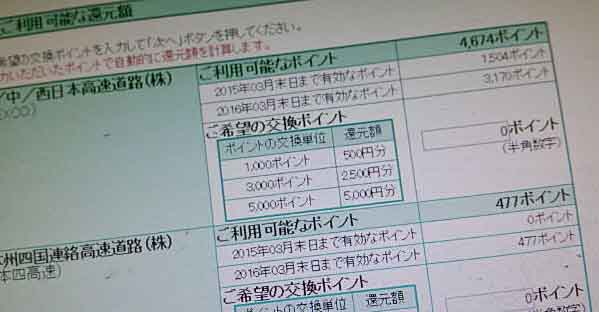 ご利用可能な還元額
希望の交換ポイントを入力して「次へ」ボタンを押してください。
力いただいたポイントで自動的に還元額を計算します。
／中／西日本高速道路(株)
ご利用可能なポイント 4,674ポイント
2015年03月末日まで有効なポイント 1,504ポイント
2016年03月末日まで有効なポイント 3,170ポイント
ご希望の交換ポイント
ポイントの交換単位 還元額
1,000ポイント 500円分
3,000ポイント 2,500円分
5,000ポイント 5,000円分
0ポイント
(半角数字)
州四国連絡高速道路(株)
本四高速)
ご利用可能なポイント 477ポイント
2015年03月末日まで有効なポイント 0ポイント
2016年03月末日まで有効なポイント 477ポイント
ご希望の交換ポイント
ポイントの交換単位 還元額
0ポイント
半角数字)